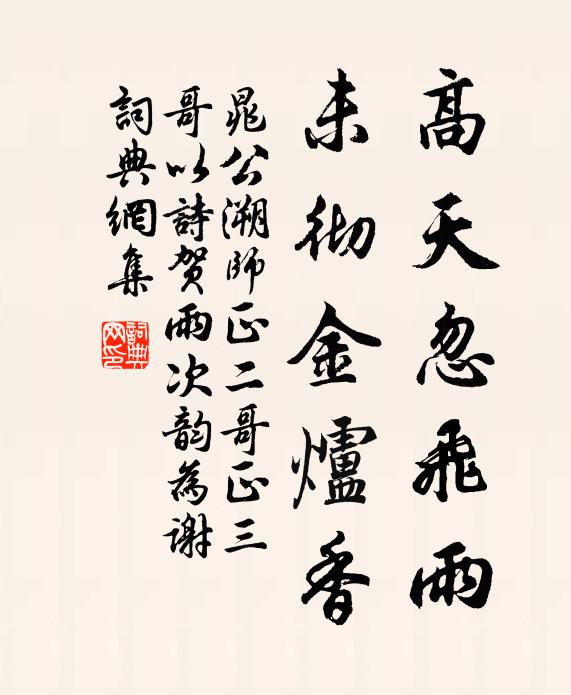 高天忽飛雨
未彻金爐香
晁公溯師正二哥正三
哥以詩賀雨次韵為谢
詞典網集
詞典网印